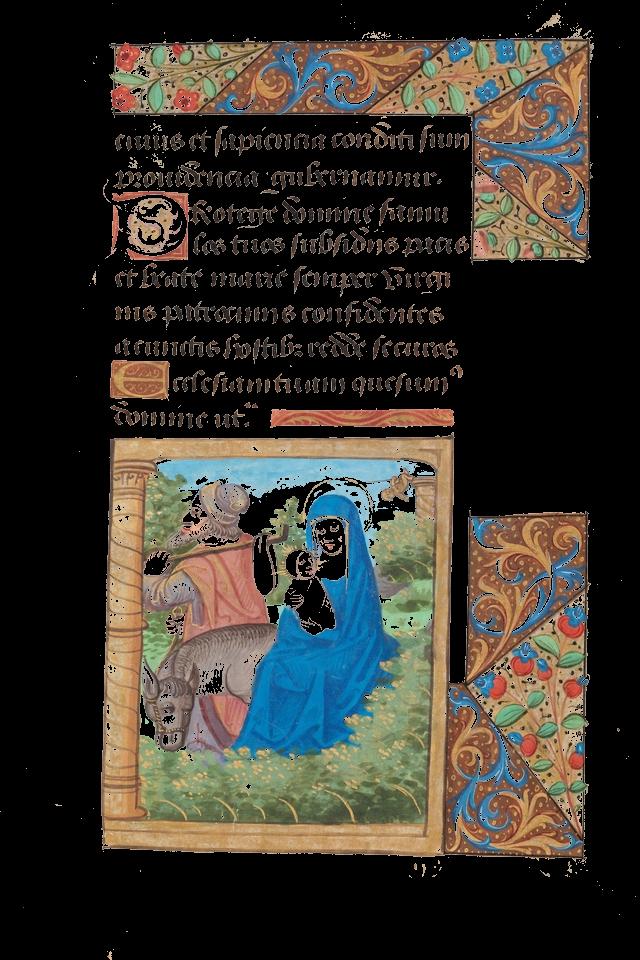 cuius et sapiencia conditi sum
prouidencia gubernamur.
Protege domine famu
los tuos subsidiis pacis
et beate marie semper virgi
nis patrociniis confidentes
a cunctis hostib₃ redde securos
Ecclesiam tuam quesum⁹
domine ut.